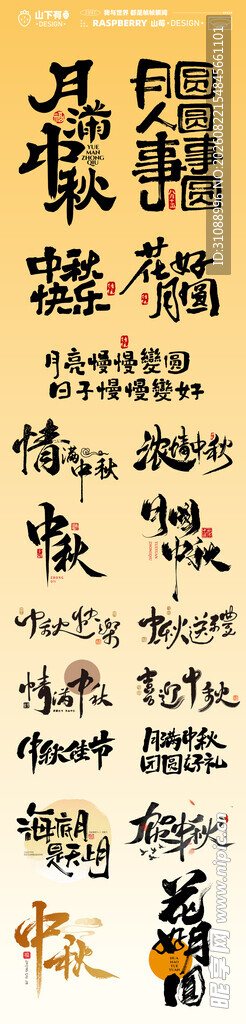 山下有
·DESIGN·
RASPBERRY 山莓·DESIGN·
月满中秋
YUE
MAN
ZHONG
QIU
月圆
人圆
事事圆
中秋
快乐
花好
月圆
月亮慢慢變圆
日子慢慢變好
情满中秋
浓情中秋
中秋
月圆
中秋
中秋快樂
中秋送禮
情满中秋
喜迎中秋
中秋佳节
月满中秋
团圆好礼
海底月
是天上月
贺中秋
中秋
花好月圆
HUA
HAO
YUE
YUAN
昵享网
ID:31088996 NO:20260822154845661101